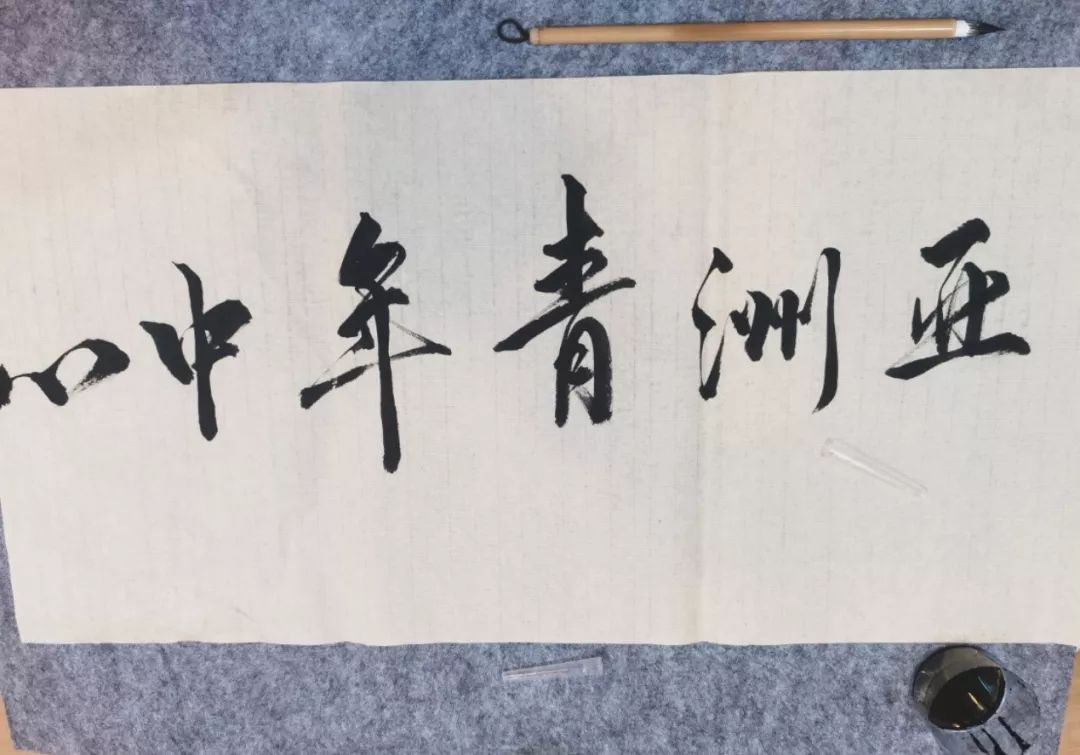 亚洲青年中心